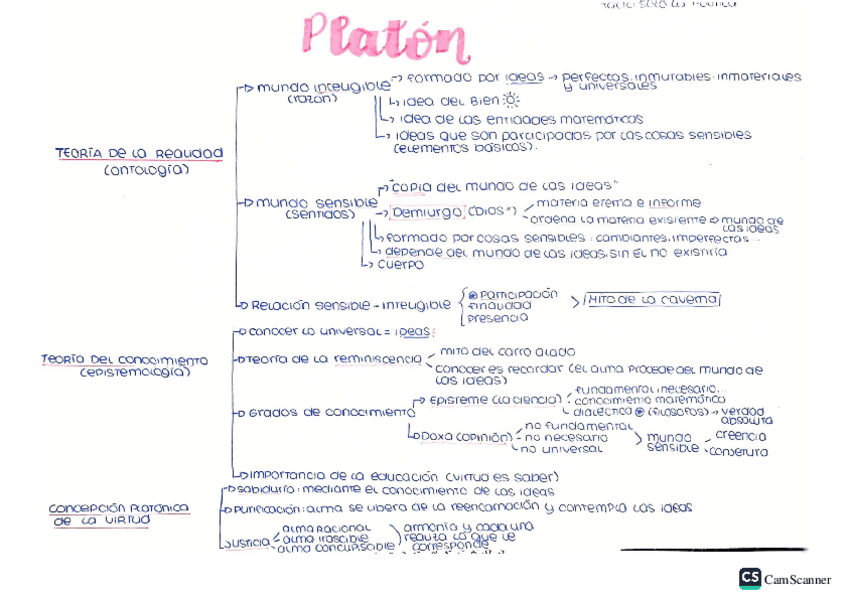 Platón
TEORÍA DE LA REALIDAD
(ONTOLOGÍA)
mundo inteligible
(razón)
formado por ideas → perfectas, inmutables, inmateriales
y universales
idea del Bien
idea de las entidades matemáticas
ideas que son participadas por las cosas sensibles
(elementos básicos).
mundo sensible
(sentidos)
"copia del mundo de las ideas"
Demiurgo ("Dios")
materia eterna e informe
ordena la materia existente → mundo de
las ideas
formado por cosas sensibles: cambiantes, imperfectas...
depende del mundo de las ideas, sin él no existiría
cuerpo
Relación sensible - inteligible
participación
finalidad
presencia
MITO DE LA CAVERNA
TEORÍA DEL CONOCIMIENTO
(EPISTEMOLOGÍA)
conocer lo universal = ideas
Teoría de la reminiscencia
mito del carro alado
conocer es recordar (el alma procede del mundo de
las ideas)
Grados de conocimiento
Episteme (la ciencia)
fundamental, necesario...
conocimiento matemático
dialéctica (filósofos) → verdad
absoluta
Doxa (opinión)
no fundamental
no necesario
no universal
mundo
sensible
creencia
conjetura
importancia de la educación (virtud es saber)
CONCEPCIÓN PLATÓNICA
DE LA VIRTUD
sabiduría: mediante el conocimiento de las ideas
purificación: alma se libera de la reencarnación y contempla las ideas
Justicia
alma racional
alma irascible
alma concupiscible
armonía y cada una
realiza lo que le
corresponde
CS CamScanner